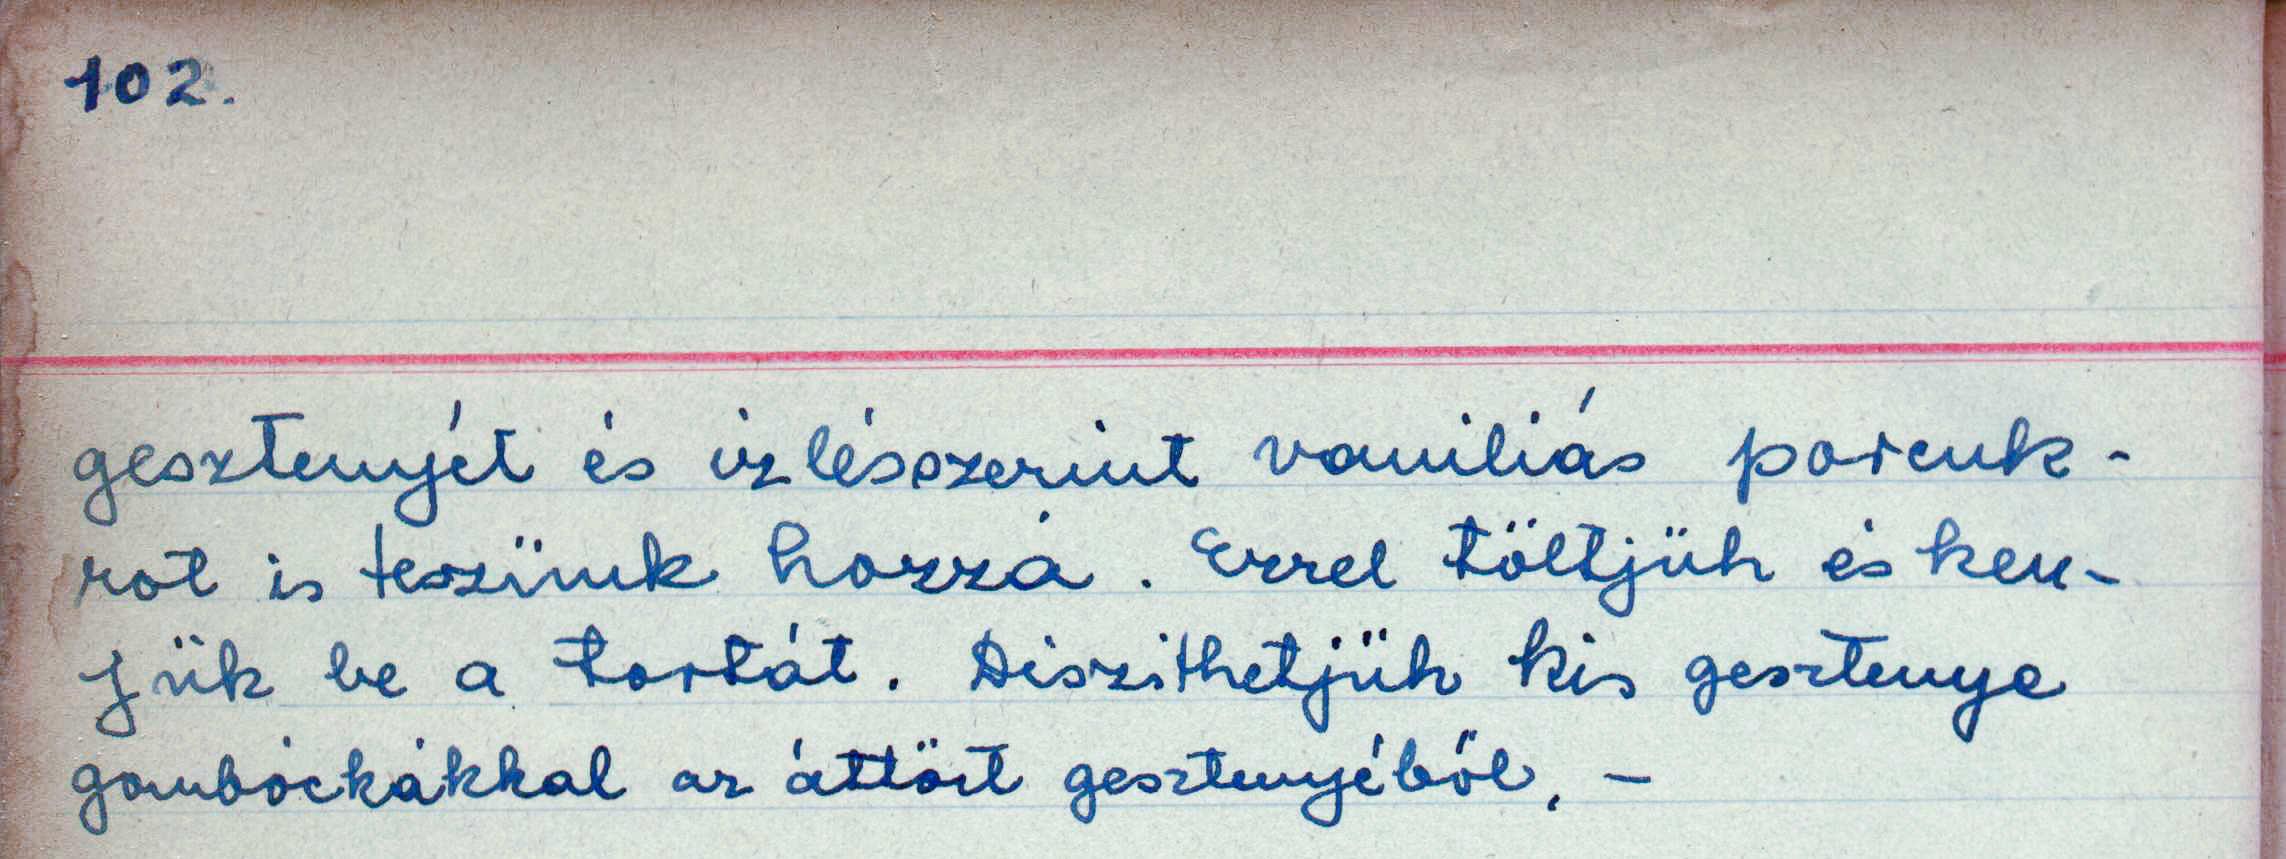 102.
gesztenyét és izlésszerint vaniliás porcuk-
rot is teszünk hozzá. Ezzel töltjük és ken-
jük be a tortát. Diszithetjük kis gesztenye
gombóckákkal az áttört gesztenyéből. –